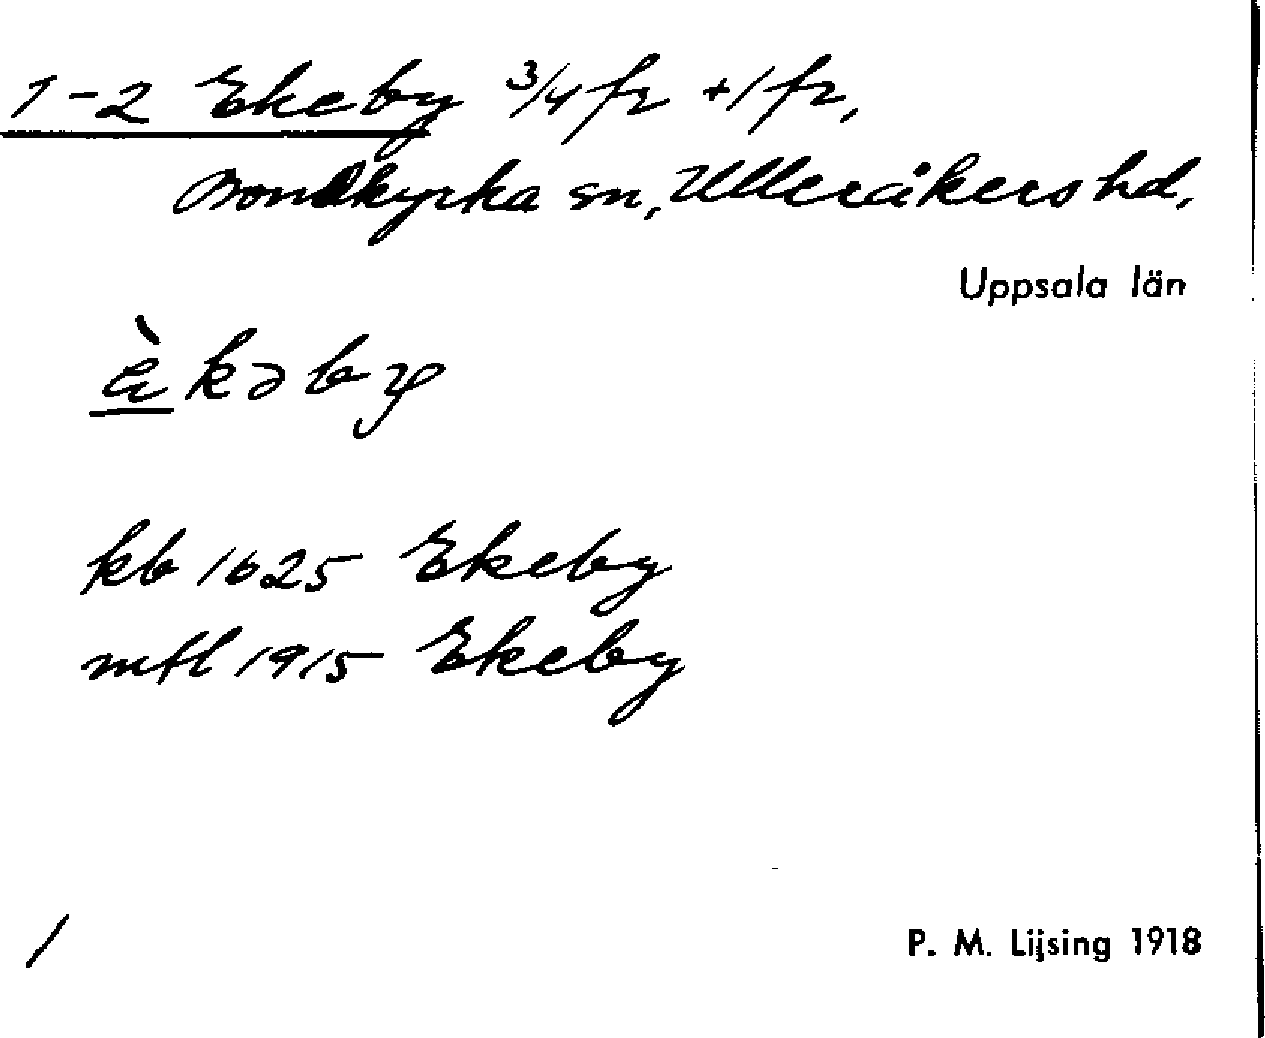 1-2 Ekeby 3/4 fr + 1 fr,
Bondkyrka sn, Ulleråkers hd,
Uppsala län
kəby
kb 1625 Ekeby
mtl 1915 Ekeby
1
P. M. Lijsing 1918